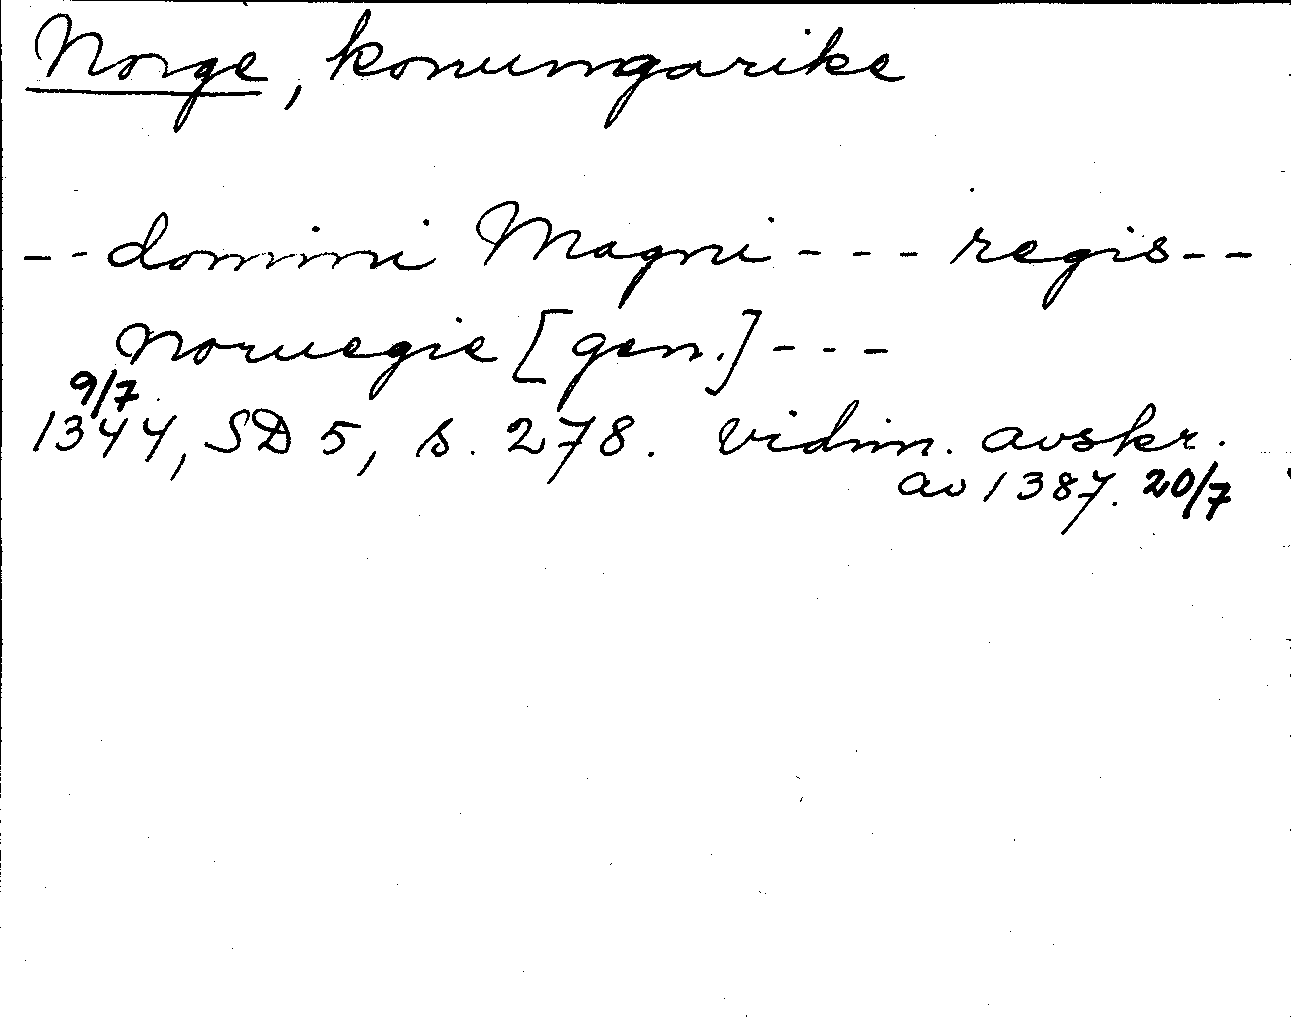 Norge, konungarike
-- domini Magni --- regis --
noruegie [gen.] ---
9/7
1344, SD 5, s. 278. vidim. avskr.
av 1387. 20/7